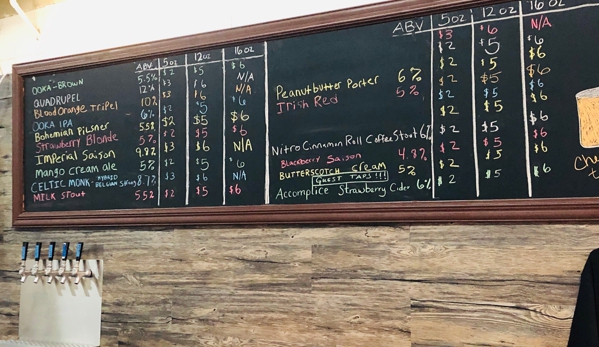 ABV 5oz 12oz 16oz
OOKA-BROWN 5.5% $2 $5 $6
QUADRUPEL 12% $3 $6 N/A
Blood Orange Tripel 10% $3 $6 N/A
OOKA IPA 6% $2 $5 $6
Bohemian Pilsner 5.5% $2 $5 $6
Strawberry Blonde 5% $2 $5 $6
Imperial Saison 9.8% $3 $6 N/A
Mango cream ale 5% $2 $5 $6
CELTIC MONK - HYBRID BELGIAN $3 $6 N/A
MILK STOUT 5.5% $2 $5 $6
ABV 5oz 12oz 16oz
$3 $6 N/A
$2 $5 $6
Peanutbutter Porter 6% $2 $5 $6
Irish Red 5% $2 $5 $6
$2 $5 $6
$2 $5 $6
Nitro Cinnamon Roll Coffee Stout 6% $2 $5 $6
Blackberry Saison 4.8% $2 $5 $6
BUTTERSCOTCH CREAM 5% $2 $5
GUEST TAPS!!!
Accomplice Strawberry Cider 6% $2 $5 $6